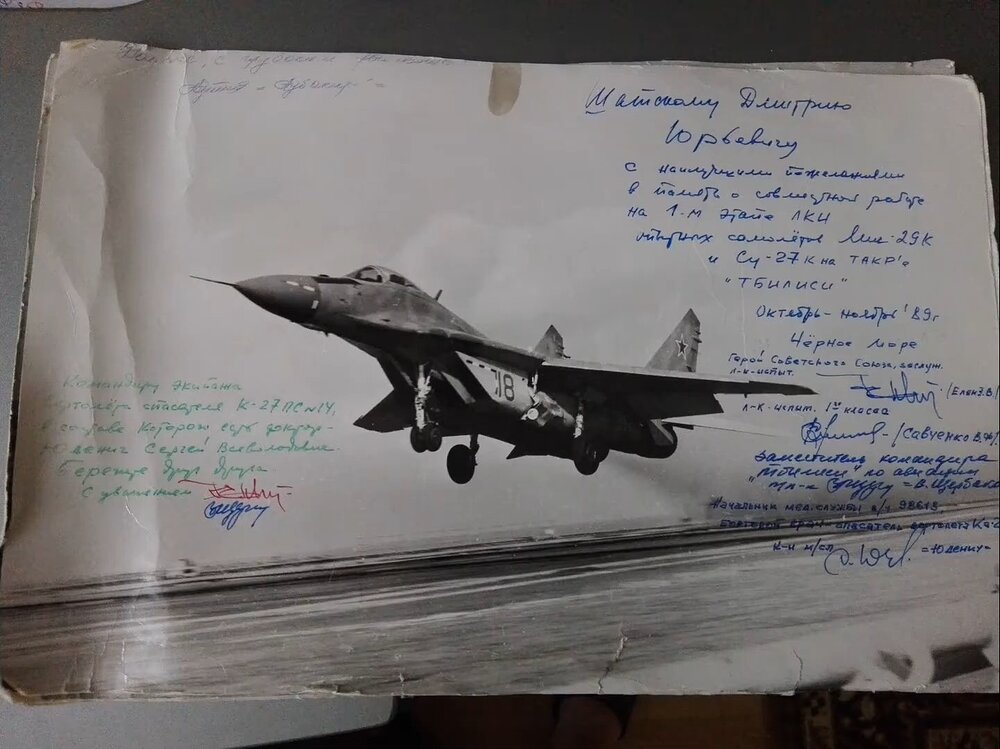 Шатскому Дмитрию
Юрьевичу
с наилучшими пожеланиями
в память о совместной работе
на 1-м этапе ЛКИ
опытных самолётов Миг-29К
и Су-27К на ТАКР'е
"ТБИЛИСИ"
Октябрь-ноябрь '89г
Чёрное море
Герой Советского Союза, заслуж.
л-к-испыт.
л-к. испыт. 1го класса
/Савченко В.
заместитель командира
"Тбилиси" по авиации
п/п-к =В. Щерба
Начальник мед. службы в/ч 98613,
бортовой врач-спасатель вертолёта Ка-
к-н м/сл =Юденич=
Командиру экипажа
вертолёта спасателя К-27ПС №14,
в составе которого есть доктор-
Юденич Сергей Всеволодович.
Берегите друг друга
С уважением
718